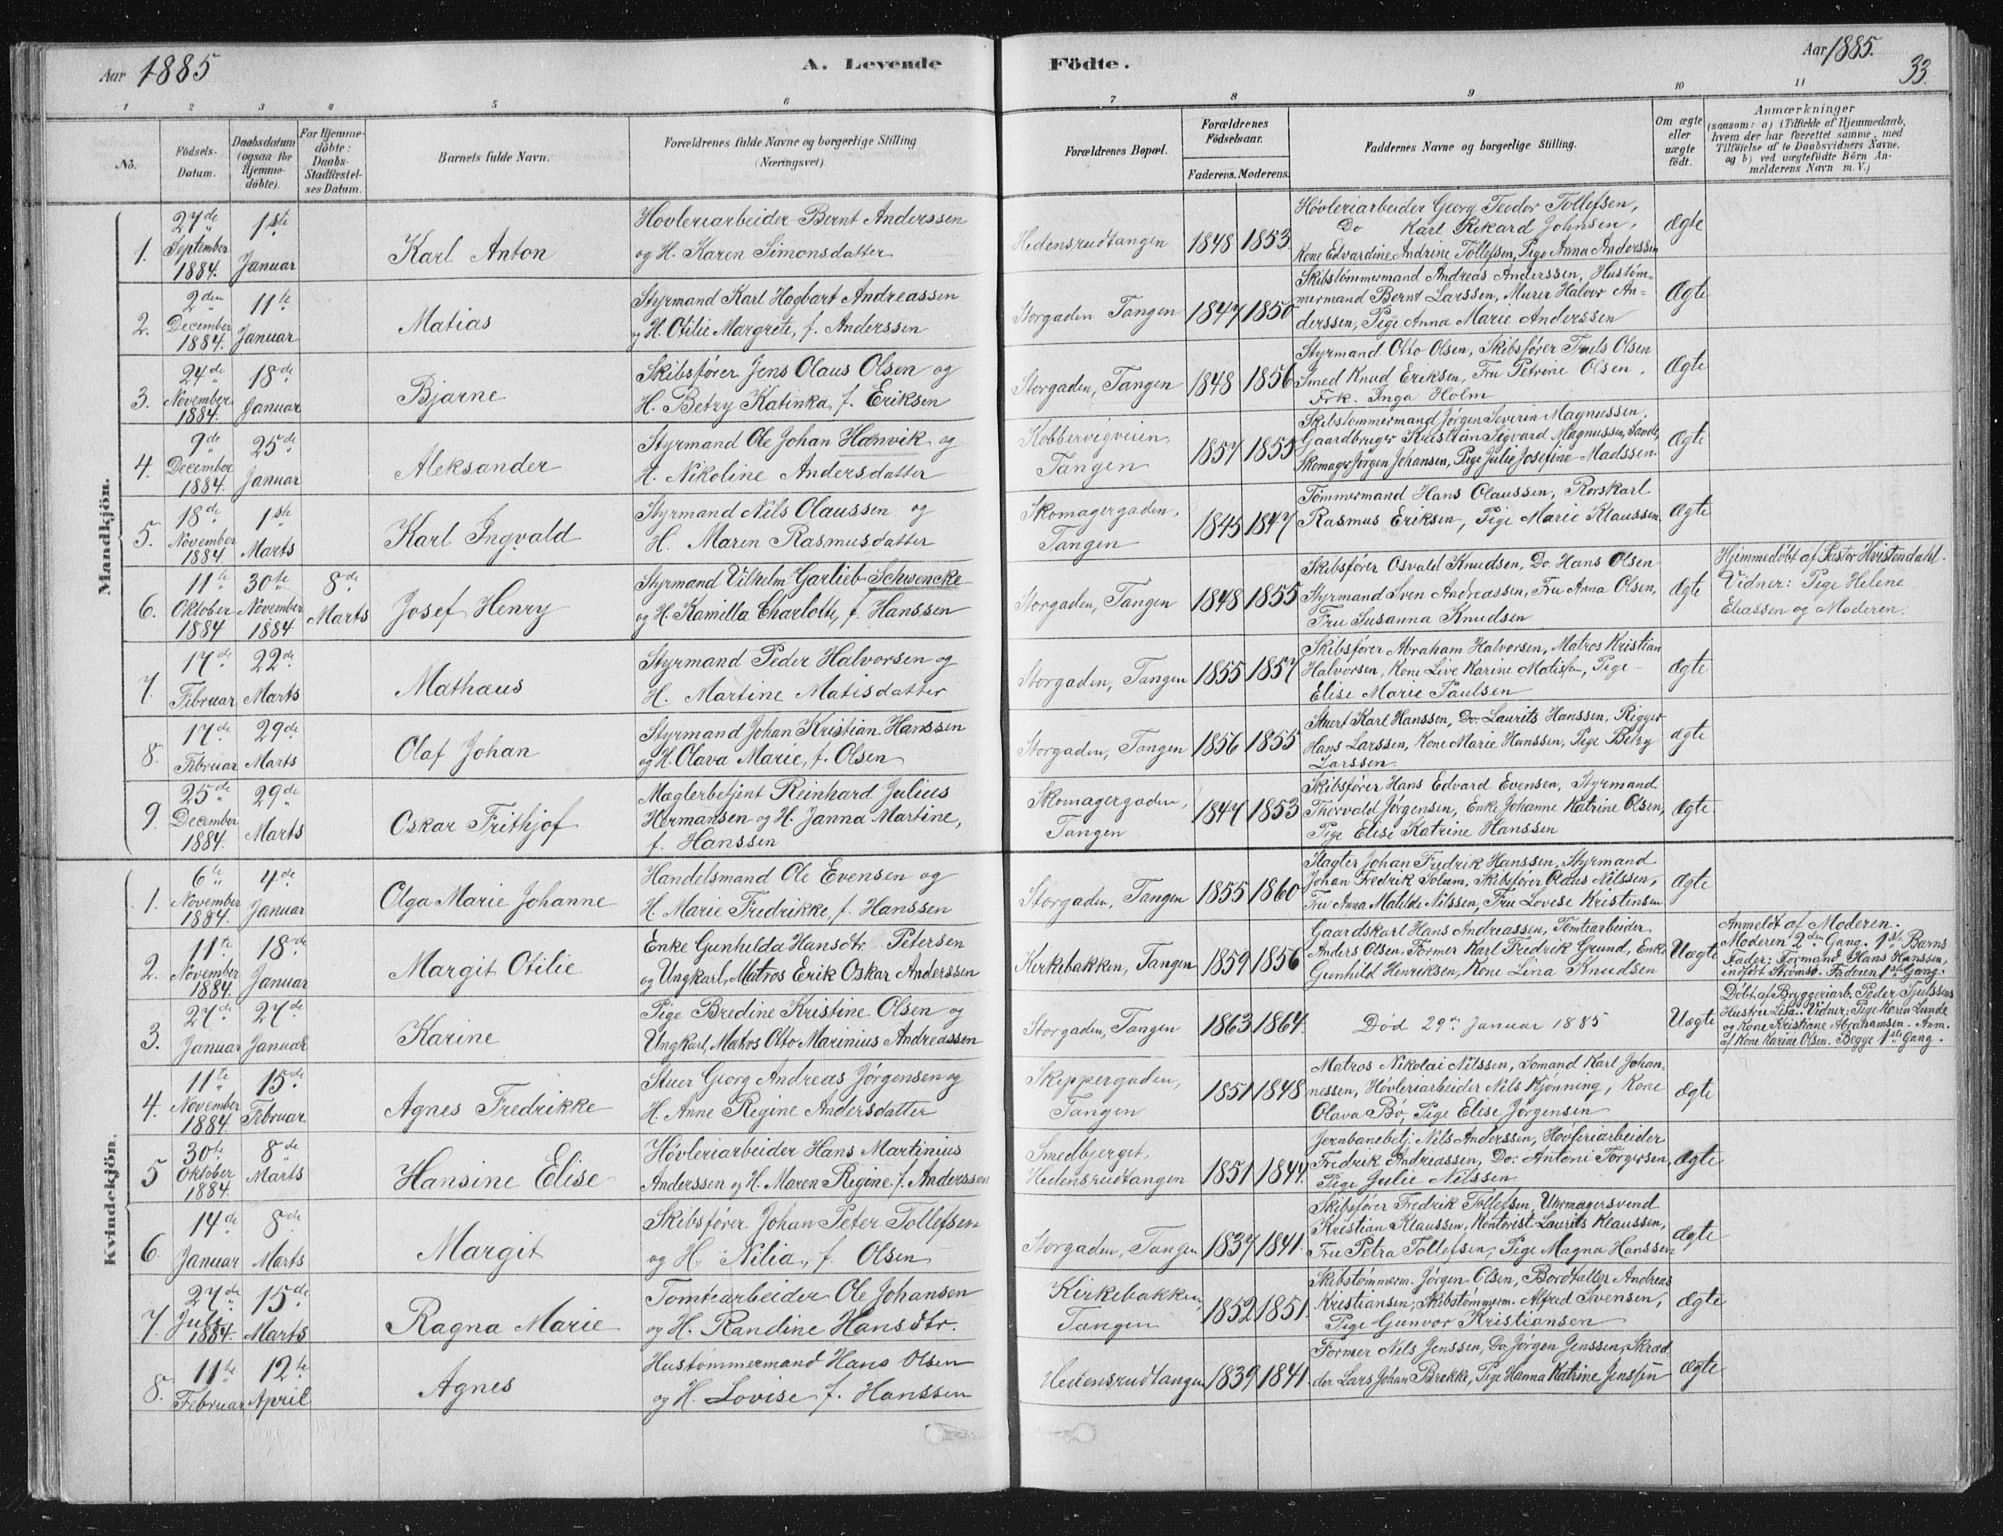 Aar 1885
A. Levende Födte.
Aar 1885.
33.
1 2 3 4 5 6 7 8 9 10 11
No.
Födsels-Datum.
Daabsdatum (ogsaa for Hjemmedöbte).
For Hjemmedöbte: Daabs-Stadfæstelses Datum.
Barnets fulde Navn.
Forældrenes fulde Navne og borgerlige Stilling (Næringsvei).
Forældrenes Bopæl.
Forældrenes Födselsaar.
Faderens. Moderens.
Faddernes Navne og borgerlige Stilling.
Om ægte eller uægte födt.
Anmærkninger
(saasom: a) i Tilfælde af Hjemmedaab,
hvem der har forrettet samme, med
Tilföielse af to Daabsvidners Navne,
og b) ved uægtefödte Börn Anmelderens Navn m. V.)
Mandkjön.
1. 27de September 1884. 1ste Januar
Karl Anton
Høvleriarbeider Bernt Anderssen
og H. Karen Simonsdatter
Hedensrudtangen 1848 1853
Høvleriarbeider Georg Teodor Tollefsen,
Do Karl Rikard Johnsen,
Kone Edvardine Andrine Tollefsen, Pige Anna Anderssen
Ægte
2. 2den December 1884. 11te Januar
Matias
Styrmand Karl Hagbart Andreassen
og H. Otilie Margrete, f. Anderssen
Storgaden Tangen 1847 1850
Skibstømmermand Andreas Anderssen, Hustøm-
mermand Bernt Larssen, Murer Halvor An-
derssen, Pige Anna Marie Anderssen
Ægte
3. 24de November 1884 18de Januar
Bjarne
Skibsfører Jens Olaus Olsen og
H. Betzy Katinka, f. Eriksen
Storgaden, Tangen 1848 1856
Styrmand Otto Olsen, Skibsfører Truls Olsen
Smed Knud Eriksen, Fru Petrine Olsen,
Frk. Inga Holm
Ægte
4. 9de December 1884 25de Januar
Aleksander
Styrmand Ole Johan Hamvik og
H. Nikoline Andersdatter
Kobbervigveien, Tangen 1857 1855
Skibstømmermand Jørgen Severin Magnussen,
Gaardbruger Kristian Sigvard Magnussen, Sande,
Skomager Jørgen Johansen, Pige Julie Josefine Madssen.
Ægte
5. 18de November 1884 1ste Marts
Karl Ingvald
Styrmand Nils Olaussen og
H. Maren Rasmusdatter
Skomagergaden, Tangen 1845 1847
Tømmermand Hans Olaussen, Rorskarl
Rasmus Eriksen, Pige Marie Klaussen
Ægte
6. 11te Oktober 1884 30te November 1884 8de Marts
Josef Henry
Styrmand Vilhelm Garlieb Schwencke
og H. Kamilla Charlotte, f. Hanssen
Storgaden, Tangen 1848 1855
Skibsfører Osvald Knudsen, Do. Hans Olsen
Styrmand Sven Andreassen, Fru Anna Olsen,
Fru Susanna Knudsen
Ægte
Hjemmedøbt af Pastor Hvistendahl.
Vidner: Pige Helene
Eliassen og Moderen.
7 17de Februar 22de Marts
Mathæus
Styrmand Peder Halvorsen og
H. Martine Matisdatter
Storgaden, Tangen 1855 1857
Skibsfører Abraham Halvorsen, Matros Kristian
Halvorsen, Kone Live Karine Matisen, Pige
Elise Marie Paulsen
Ægte
8. 17de Februar 29de Marts
Olaf Johan
Styrmand Johan Kristian Hanssen
og H. Olava Marie, f. Olsen
Storgaden, Tangen 1856 1855
Stuert Karl Hanssen, Do. Laurits Hanssen, Rigger
Hans Larssen, Kone Marie Hanssen, Pige Betzy
Larssen
Ægte
9. 25de December 1884. 29de Marts
Oskar Frithjof
Mæglerbetjent Reinhard Julius
Hermansen og H. Janna Martine,
f. Hanssen
Skomagergaden, Tangen 1847 1853
Skibsfører Hans Edvard Evensen, Styrmand
Thorvald Jørgensen, Enke Johanne Katrine Olsen,
Pige Elise Katrine Hanssen
Ægte
Kvindekjön.
1. 6te November 1884. 4de Januar
Olga Marie Johanne
Handelsmand Ole Evensen og
H. Marie Fredrikke, f. Hanssen
Storgaden, Tangen 1855 1860
Slagter Johan Fredrik Hanssen, Styrmand
Johan Fredrik Solum, Skibsfører Olaus Nilssen,
Fru Anna Matilde Nilssen, Frue Lovise Kristinsen
Ægte
2. 11te November 1884. 18de Januar
Margit Otilie
Enke Gunhilda Hansdtr. Petersen
og Ungkarl, Matros Erik Oskar Anderssen
Kirkebakken, Tangen 1859 1856
Gaardskarl Hans Andreassen, Tomtearbeider
Anders Olsen, Former Karl Fredrik Grund, Enke
Gunhild Henriksen, Kone Lina Knudsen
Uægte
Anmeldt af Moderen.
Moderen 2den Gang. 1ste Barns
Fader: Formand Hans Hanssen,
indført Strømsø. Faderen 1ste Gang.
3. 27de Januar 27de Januar
Karine
Pige Bredine Kristine Olsen og
Ungkarl, Matros Otto Marinius Andreassen
Storgaden, Tangen 1863 1864.
Død 29de Januar 1885
Uægte
Døbt af Bryggeriarb. Peder
Hustru Lisa. Vidner: Pige Karin Lunde
og Kone Kristiane Abrahamsen. Anm.
af Kone Karine Olsen. Begge 1ste Gang.
4. 11te November 1884 15de Februar
Agnes Fredrikke
Stuer Georg Andreas Jørgensen og
H. Anne Regine Andersdatter
Skippergaden, Tangen 1851 1848
Matros Nikolai Nilssen, Sømand Karl Johan-
nessen, Høvleriarbeider Nils Kjønning, Kone
Olava Bø, Pige Elise Jørgensen
Ægte
5 30te Oktober 1884. 8de Marts
Hansine Elise
Høvleriarbeider Hans Martinius
Anderssen og H. Maren Regine f. Anderssen
Smedbjerget, Hedensrudtangen 1851 1844.
Jernbanebetj. Nils Anderssen, Høvleriarbeider
Fredrik Andreassen, Do: Antoni Torgersen,
Pige Julie Nilssen
Ægte
6. 14de Januar 8de Marts
Margit
Skibsfører Johan Peter Tollefsen
og H. Nilia, f. Olsen
Storgaden, Tangen 1837 1841.
Skibsfører Fredrik Tollefsen, Uhrmagersvend
Kristian Klaussen, Kontorist Laurits Klaussen,
Fru Petra Tollefsen, Pige Magna Hanssen
Ægte
7. 27de Juli 1884. 15de Marts
Ragna Marie
Tomtearbeider Ole Johansen
og H. Randine Hansdtr.
Kirkebakken, Tangen 1852 1851.
Skibstømmerm. Jørgen Olsen, Bordtæller Andreas
Kristiansen, Skibstømmerm. Alfred Svensen,
Pige Gunvor Kristiansen
Ægte
8. 11te Februar 12te April
Agnes
Hustømmermand Hans Olsen
og H. Lovise f. Hanssen
Hedensrudtangen 1839 1841.
Former Nels Jenssen, Do. Jørgen Jenssen, Skræd-
der Lars Johan Brekke, Pige Hanna Katrine Jenssen
Ægte